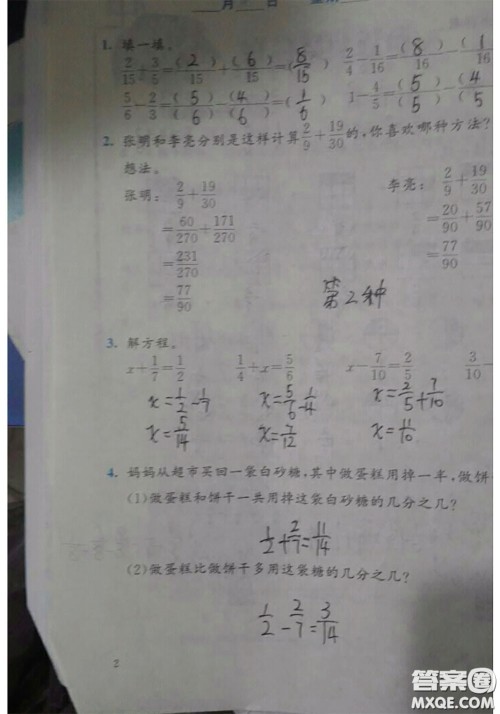 月 日
1. 填一填。
2/15+3/5=(2)/15+(6)/15=(8/15) 2/4-1/16=(8)/16-(1
5/6-2/3=(5)/(6)-(4)/(6)=(1/6) 1-4/5=(5)/(5)-(4/(5
2. 张明和李亮分别是这样计算2/9+19/30的,你喜欢哪种方法?
想法。
张明: 2/9+19/30 李亮: 2/9+19/30
=60/270+171/270 =20/90+57/90
=231/270 =77/90
=77/90
第2种
3. 解方程。
x+1/7=1/2 1/4+x=5/6 x-7/10=2/5 3/10-
x=1/2-1/7 x=5/6-1/4 x=2/5+7/10
x=5/14 x=7/12 x=11/10
4. 妈妈从超市买回一袋白砂糖,其中做蛋糕用掉一半,做饼
(1)做蛋糕和饼干一共用掉这袋白砂糖的几分之几?
1/2+2/7=11/14
(2)做蛋糕比做饼干多用这袋糖的几分之几?
1/2-2/7=3/14
2
答案圈
MXQE.COM